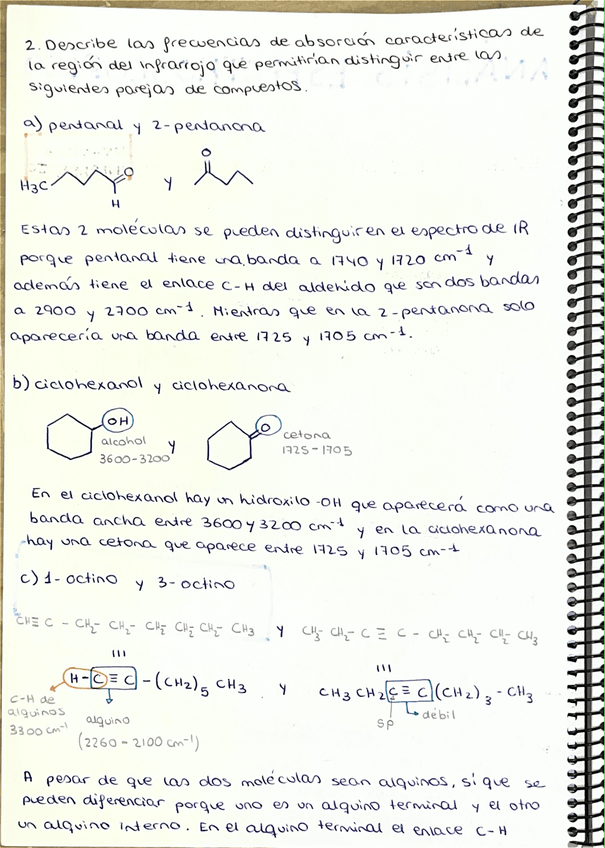 2. Describe las frecuencias de absorción características de
la región del Infrarrojo que permitirían distinguir entre las
siguientes parejas de compuestos.
a) pentanal y 2-pentanona
O
H3C O y
H
Estas 2 moléculas se pueden distinguir en el espectro de IR
porque pentanal tiene una banda a 1740 y 1720 cm⁻¹ y
además tiene el enlace C-H del aldehido que son dos bandas
a 2900 y 2700 cm⁻¹. Mientras que en la 2-pentanona solo
aparecería una banda entre 1725 y 1705 cm⁻¹.
b) ciclohexanol y ciclohexanona
OH O
alcohol y cetona
3600-3200 1725-1705
En el ciclohexanol hay un hidroxilo -OH que aparecerá como una
banda ancha entre 3600 y 3200 cm⁻¹ y en la ciclohexanona
hay una cetona que aparece entre 1725 y 1705 cm⁻¹
c) 1-octino y 3-octino
CH≡C - CH2- CH2- CH2 CH2 CH2- CH3 y CH3- CH2- C ≡ C - CH2- CH2- CH2- CH3
III III
H-C≡C-(CH2)5 CH3 y CH3 CH2 C≡C(CH2)3-CH3
C-H de
alquinos
3300 cm⁻¹
alquino
(2260-2100 cm⁻¹)
sp débil
A pesar de que las dos moléculas sean alquinos, sí que se
pueden diferenciar porque uno es un alquino terminal y el otro
un alquino interno. En el alquino terminal el enlace C-H